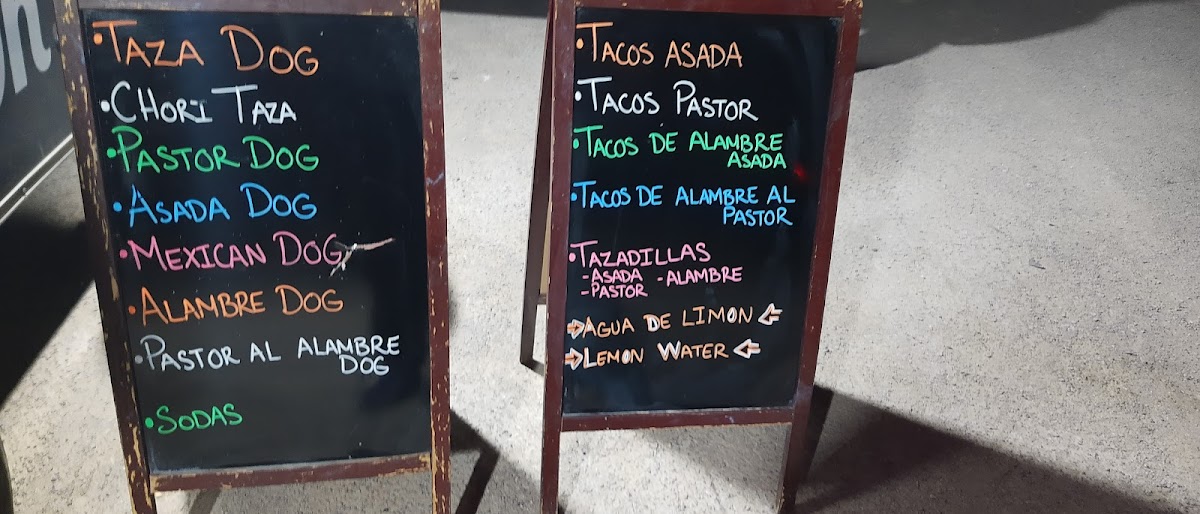 •Taza Dog
•Chori Taza
•Pastor Dog
•Asada Dog
•Mexican Dog
•Alambre Dog
•Pastor al alambre
Dog
•Sodas
•Tacos asada
•Tacos Pastor
•Tacos de alambre
asada
•Tacos de alambre al
pastor
•Tazadillas
-Asada -Alambre
-Pastor
⇨Agua de limon⇦
⇨Lemon Water⇦